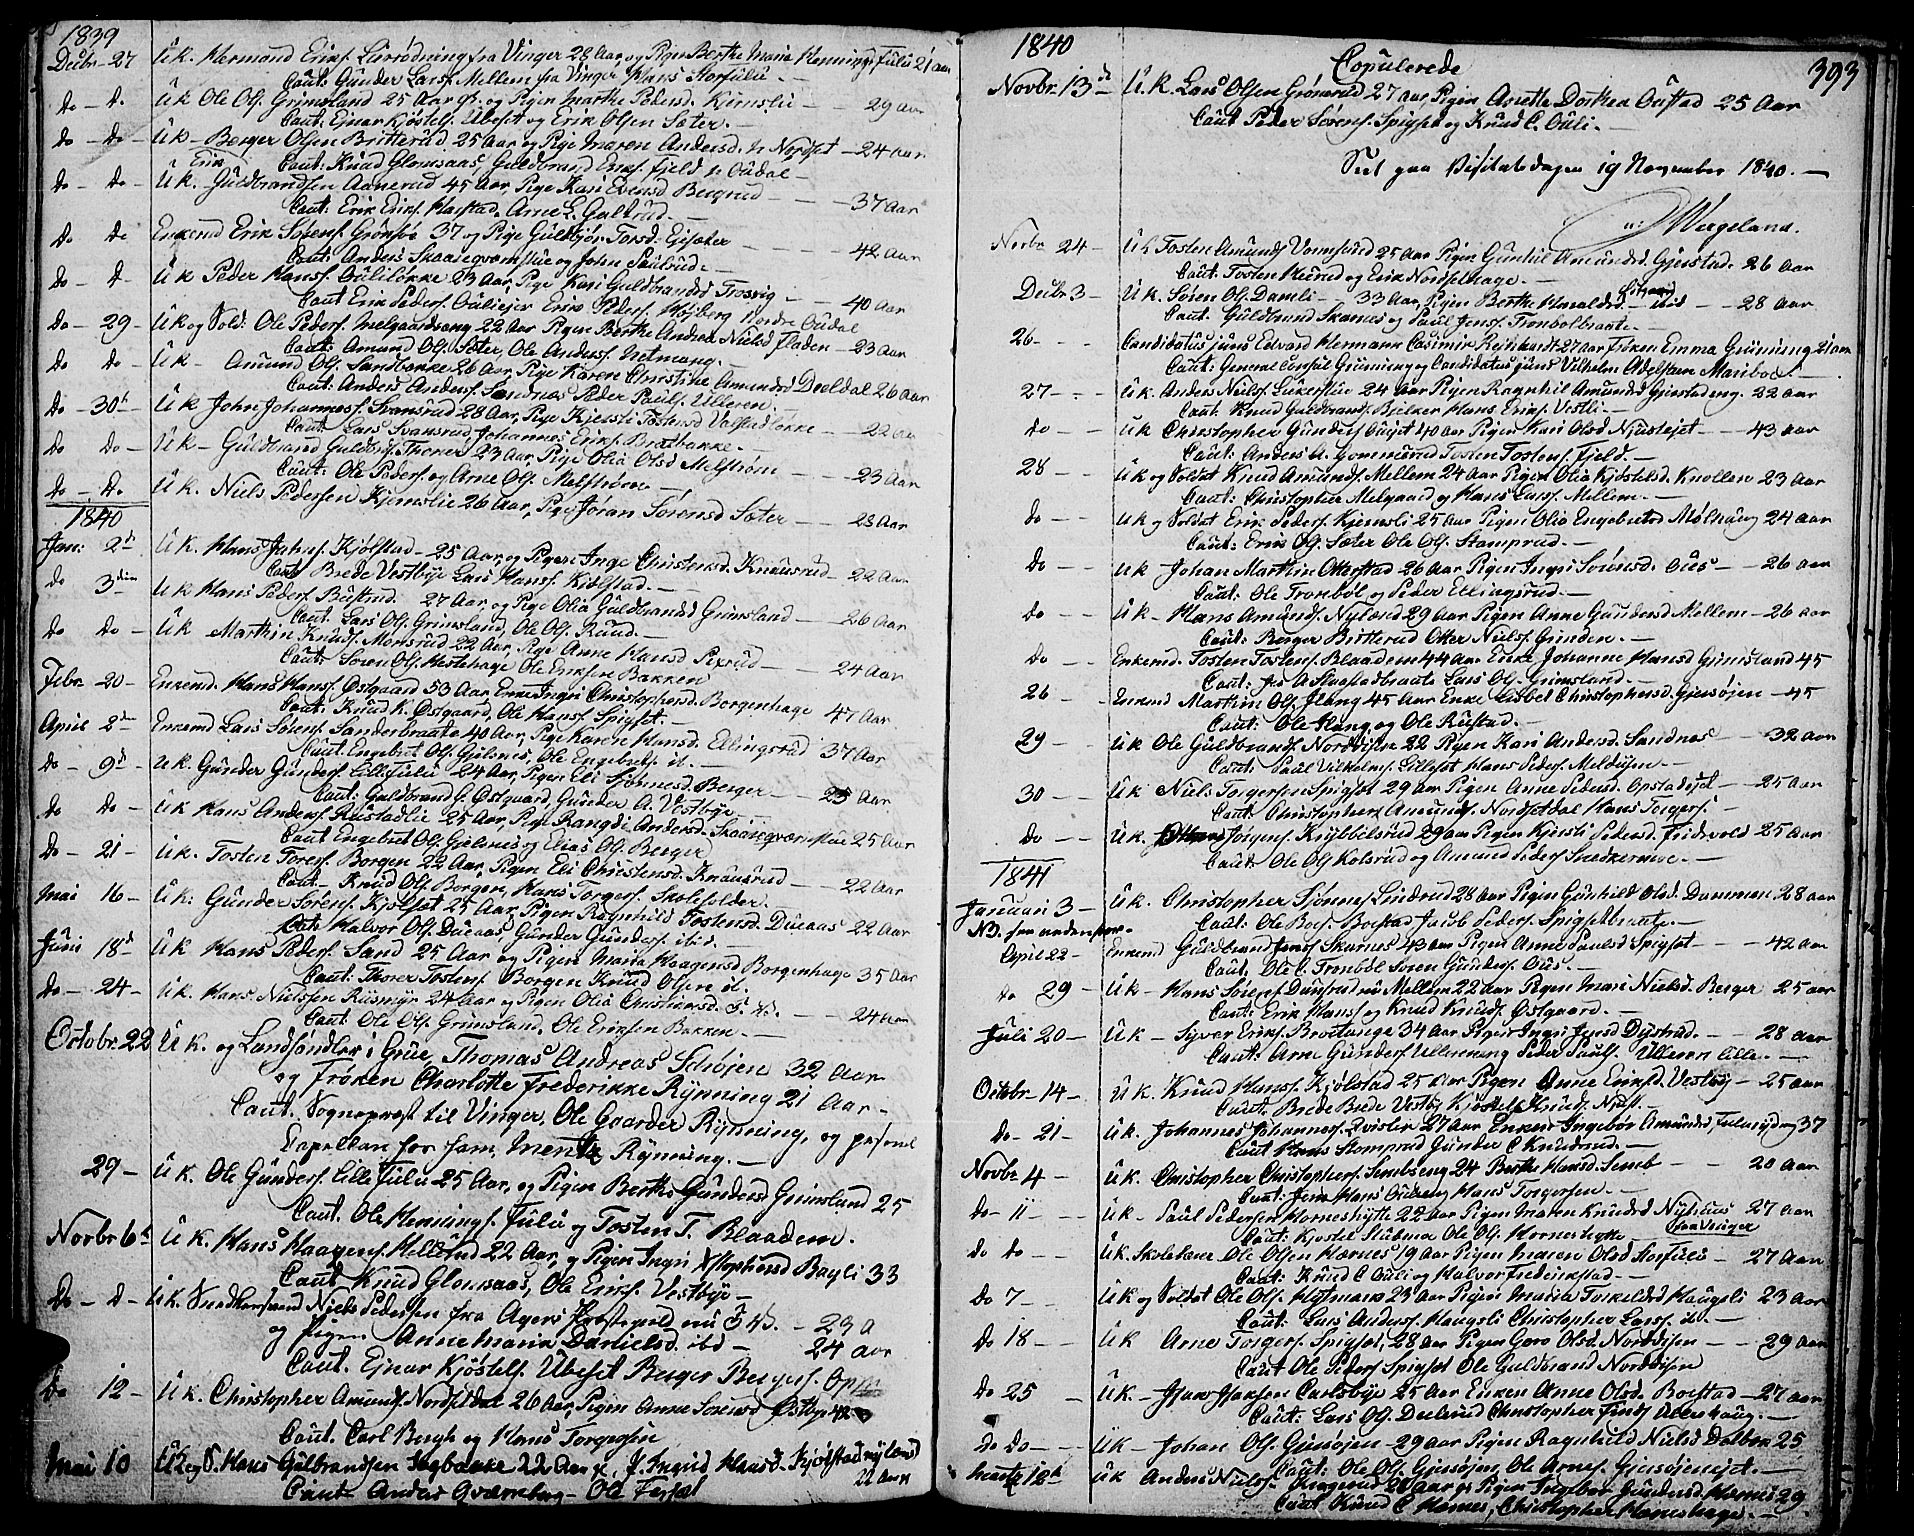 1839
Decbr 27 U.K. Harmond Eriks. Livrødning fra Vinger 28 Aar, og Pigen Berthe Maria Hennings. Fulu 21 aar
Caut. Gunder Lars. Mellem fra Vinger Hans Storfulu. —
Do — D. U K Ole Ols. Grimsland 25 Aar og Pigen Marthe Pedersd. Kiemslie — 29 aar
Caut: Ejnar Kjøstels. Ubeset og Erik Olsen Sæter. —
Do — Do U K — Berger Olsen Britterud, 25 Aar, og Pige Maren Andersd. Nordset — 24 aar
Caut: Knud Glomsaas, Guldbrand Eriks. Fjeld Oudal —
Do — Do U K. Erik Guldbrandsen Aanerud 45 Aar, Pige Kari Evensd Bergrud — 37 Aar
Caut: Erik Eriks. Harstad, Arne L. Galterud. —
Do Do Enkemd Erik Sørens. Grønsøe 37 og Pige Guldbjør Torsd. Ejsæter — 42 Aar
Caut: Anders Skaaregværnstue og John Paulrud. —
Do — D U K Peder Hans. Ouliløkke 23 Aar, Pige Kari Guldbrandsd Trosvig — 40 Aar
Caut Erik Peders. Ouliejer Erik Peders. Højberg Nordre Oudal
Do — 29 — U K og Sold: Ole Peders. Melgaardsang 22 Aar Pigen Berthe Andrea Nielsd Fladen — 23 Aar
Caut: Amund Ols. Sæter, Ole Anders. Netmang. —
Do Do — U K — Amund Ols. Sandbakke 26 Aar, Pige Karen Christine Amundsd Dældal 26 Aar
Caut: Anders Anders. Sandnæs Peder Pauls. Ulleren.
Do — 30 U K John Johannes. Svansrud 28 Aar, Pige Kjersti Tostensd Volstadløkke — 22 Aar
Caut Lars Svansrud, Johannes Eriks. Bradbakke. —
Do Do — U K — Guldbrand Guldbrs. Thoner 23 Aar, Pige Olia Olsd Melstrøm — 23 Aar
Caut: Ole Peders. og Arne Ols. Melstrøm —
Do — Do U.K. Niels Pedersen Kjemslie 26 Aar, Pige Jøran Sørensd Sæter — 28 Aar
1840
Jan: 2d U.K. Hans Johns. Kjølstad — 25 Aar, og Pigen Inge Christensd. Knausrud — 22 Aar
Caut Brede Vestbye Lars Hans. Kjølstad. —
Do 3die U K Hans Peders. Bustrud. 27 Aar, og Pige Olia Guldbrandsd Grimsland — 26 Aar
Caut: Lars Ols. Grimsland, Ole Ols. Ruud. —
Do Do — U K Marthin Knuds. Monsrud 22 Aar, Pige Anne Hansd Pexrud — 24 Aar
Caut Soren Ols. Hestehage Ole Eriksen Bakken
Febr. 20 — Enkemd. Hans Hans. Østgaard 53 Aar, Enke Ingri Christophersd. Borgenhage 47 Aar
Caut: Knud K. Østgaard, Ole Hans. Spigset. —
April 2den Enkemd Lars Sørens. Sanderbraate 40 Aar, Pige Karen Hansd. Ellingsrud 37 Aar
Caut. Engebret Ols. Gjelsnes, Ole Engebrets. it. —
Do — 9d U.K. Gunder Gunders. Lillefulu 24 Aar, Pigen Eli Sjønnesd. Berger — 25 Aar
Caut: Guldbrand G. Østgaard, Gunder A. Vestbye —
Do Do — U K Hans Anders. Rustadlie 25 Aar, Pige Rangdi Andersd. Skaaregværnstue 25 Aar
Caut Engebret Ols. Gjelsnes og Elias Ols. Berger
Do — 21 — U.K. Tosten Tores. Borgen 22 Aar, Pigen Eli Christensd. Knausrud — 22 Aar
Caut — Knud Ols. Borgen, Hans Torgers. Skoleholder. —
Mai 16 — U K: Gunder Sørens. Kjølset 25 Aar, Pigen Ragnhild Tostensd. Dueaas 22 Aar
Caut: Halvor Ols. Dueaas, Gunder Gunders. ibid. —
Juni 18d U K Hans Peders. Sand 25 Aar og Pigen Maria Haagensd Borgenhage 35 Aar
Caut: Thorer Tostens. Borgen Knud Olsen it.
Do — 24 — U.K. Hans Nielsen Rusmyr 24 Aar og Pigen Olia Christiansd. — 24 Aar
Caut Ole Ols. Grimsland, Ole Eriksen Bakken. —
Octobr. 22 U K. og Landhandler i Grue, Thomas Andreas Schøjen 32 Aar
og Frøken Charlotte Frederikke Rynning 21 Aar —
Caut. Sognepræst til Vinger, Ole Gaarder Rynning, og personel
Capellan for ham, Mentz Rynning. —
29 — U K. Ole Gunders. Lille Fulu 25 Aar, og Pigen Berthe Gundersd Grimsland 25
Caut. Ole Hennings. Fulu og Tosten T. Blaadem.
Novbr 6t U K. Hans Haagens. Hellerud 22 Aar, og Pigen Ingri Xstophersd Bagli 33
Caut Knud Glomsaas, Ole Eriks. Vestbye —
Do — D — U.K. Niels Pedersen fra Agers Præstegield nu — 23 A
og Pigen Anne Maria Danielsd. ibd — 24 Aar
Caut. Ejnar Kjøstels. Ubeset Berger Bergers.
Do 12 — U K. Christopher Amunds. Nordsetdal 26 Aar, Pigen Anne Sorensd Østbye 42
Caut. Carl Bergh og Hans Torgersen
Mai 10 U K og S. Hans Gulbrandsen Sagbakke 22 Aar, P. Ingrid Hansd. Kjølstadnylænd 22 Aar
Caut Anders Qværnberg — Ole
1840
Copulerede 393
Novbr. 13de U. K. Lars Olsen Grønerud 27 aar, Pigen Anette Dorthea Oustad 25 Aar
Caut Peder Sørens. Spigset og Knud C. Ouli. —
Seet paa Visitatsdagen 19 November 1840. —
Wergeland.
Novbr 24 — U K Tosten Amunds Vermserud 25 aar Pigen Gunhil Amundsd. Gjerstad. 26 Aar
Caut. Tosten Meirud og Erik Nordsethage. —
Decbr 3 — U K. Søren Ols. Damli — 33 Aar, Pigen Berthe Haraldsd. — 28 Aar
Caut: Guldbrand Skarnes og Paul Jens. Trondbolbraate —
26 — Candidatus juris Edvard Hermann Casimir Reinhardt 27 aar Frøken Emma Grünning 21 aar
Caut: General Consul Grünning og Candidatus juris Vilhelm Adelsteen Mariboe. —
27 — U K. Anders Niels. Lukestue 24 Aar Pigen Ragnhil Amundsd Gjerstadeng. 22 aar
Caut. Knud Guldbrands. Bjelker Hans Eriks. Vestli. —
Do — U K Christopher Gunders. Ouset 40 aar Pigen Kari Olsd. Njustejet — 43 aar
Caut: Anders A. Gommerud Tosten Tostens. Fjeld. —
28 — U K og Soldat Knud Amunds. Mellem 24 aar Pigen Olia Kjøstelsd. Knollen 23 aar
Caut: Christopher Melgaard og Hans Lars. Mellem. —
Do — U K og Soldat Erik Peders. Kjemsli 25 Aar Pigen Olia Engebretsd Mølhaug 24 aar
Caut: Erik Ols. Sæter Ole Ols. Stomprud. —
Do — U K Johan Marthin Ottestad 26 aar Pigen Ingri Sørensd. Oues — 26 aar
Caut: Ole Trondbøl og Peder Ellingsrud. —
Do — U K — Hans Amunds. Nylænd 29 Aar Pigen Anne Gundersd Mellem — 26 aar
Caut: Berger Britterud Otter Niels. Grunden. —
Do — Enkemd. Tosten Tostens. Blaadem 44 aar Enke Johanne Hansd Grimsland 45
Caut: Jens A. Skolstadbraate Lars Ols. Grimsland. —
26 — Enkemd Marthin Ols. Haug 45 Aar Enke Lisbet Christophersd. Gjersøjen — 45
Caut: Ole Haug og Ole Rustad. —
29 — U K Ole Guldbrands. Norddisen 22 Pigen Kari Andersd. Sandnæs — 32 aar
Caut: Paul Vilhelms. Lilleset Hans Peders. Meldisen. —
30 — U K Niels Torgersen Spigset 29 aar Pigen Anne Pedersd. Opstadejet — 25 aar
Caut: Christopher Amunds. Nordsetdal Hans Torgers. —
Do — U.K. Jørgens. Knybbelsrud 29 aar Pigen Kjersti Pedersd. Fridsvold 25 Aar
Caut: Ole Ols. Kolsrud og Amund Peders. Snedkermoe. —
1841
Januari 3 — U K. Christopher Sjønnes. Lindrud 28 aar Pigen Gunhild Olsd. Dammen 28 aar
NB. see nedenfor. Caut: Ole Boes. Boestad Jacob Peders. Spigsetbraate. —
April 22 — Enkemd Guldbrand Jens. Skarnes 43 aar Pigen Anne Paulsd Spigset — 42 aar
Caut. Ole C. Trondbøl Soren Gunders. Oues. —
Do 29 — U K — Hans Sørens. Dansrud nu Mellem 22 aar Pigen Mari Nielsd. Berger 25 aar
Caut: Erik Hans. og Knud Knuds. Østgaard. —
Juli 20 — U K — Syver Eriks. Brodtange 34 aar Pigen Ingri Jensd Dystrud. — 28 aar
Caut: Arne Gunders. Ullereneng Peder Pauls. Ulleren lille. —
October 14 — U.K. Knud Hans. Kjølstad 25 aar Pigen Anne Eriksd. Vestby — 25 aar
Caut: Brede Brede Vestby Kjøstel Knuds.
Do — 21 — U K. Johannes Johannes. Qvislir 27 aar Enken Ingebor Amundsd. 37
Caut Hans Stomprud Gunder C. Knudsrud. —
Novbr 4 — U K. Christopher Christophers. Sembeng 24 Berthe Hansd. Semb — 20 aar
Caut: Jens Hans. Oudeng Hans Torgersen. —
Do — 11 — U K — Paul Pedersen Horneshytte 22 aar Pigen Maren Knudsd Nyhuus 27 aar
fra Vinger
Caut: Kjøstel Ole Ols. Horneshytte —
Do Do — U K. Skolelærer Ole Olsen Hærnes 19 aar Pigen Maren Olsd Storfulu — 27 Aar
Caut: Knud C. Ouli og Halvor Frederikstad. —
Do 7 — U K og Soldat Ole Ols. Mytmark 23 Aar Pigen Maria Torkildsd Haugsli 23 aar
Caut: Lars Anders. Haugsli Christopher Lars. it. —
Do 18 — U K Arne Torgers. Spigset, 28 aar Pigen Goro Olsd. Norddisen — 29 aar
Caut Ole Peders. Spigset Ole Guldbrand Norddisen
Do 25 — U K — Carlsbye 25 aar Enken Anne Olsd. Boestad — 27 aar
Caut: Lars Ols. Deelrud Christopher —
Do Do — U K — Johan Ols. Gjersøjen — 29 aar Pigen Ragnhild Nielsd Dølbren 25
Caut: Ole Ols. Gjersøjen, Ole Arnes. Gjersøjenejet. —
Martz 10de U K Anders Niels. Kragerud 28 Aar og Pigen Ingebor Gundersd. Hærnes 29
Caut Knud C. Hærnes, Christopher Hærneshage. —